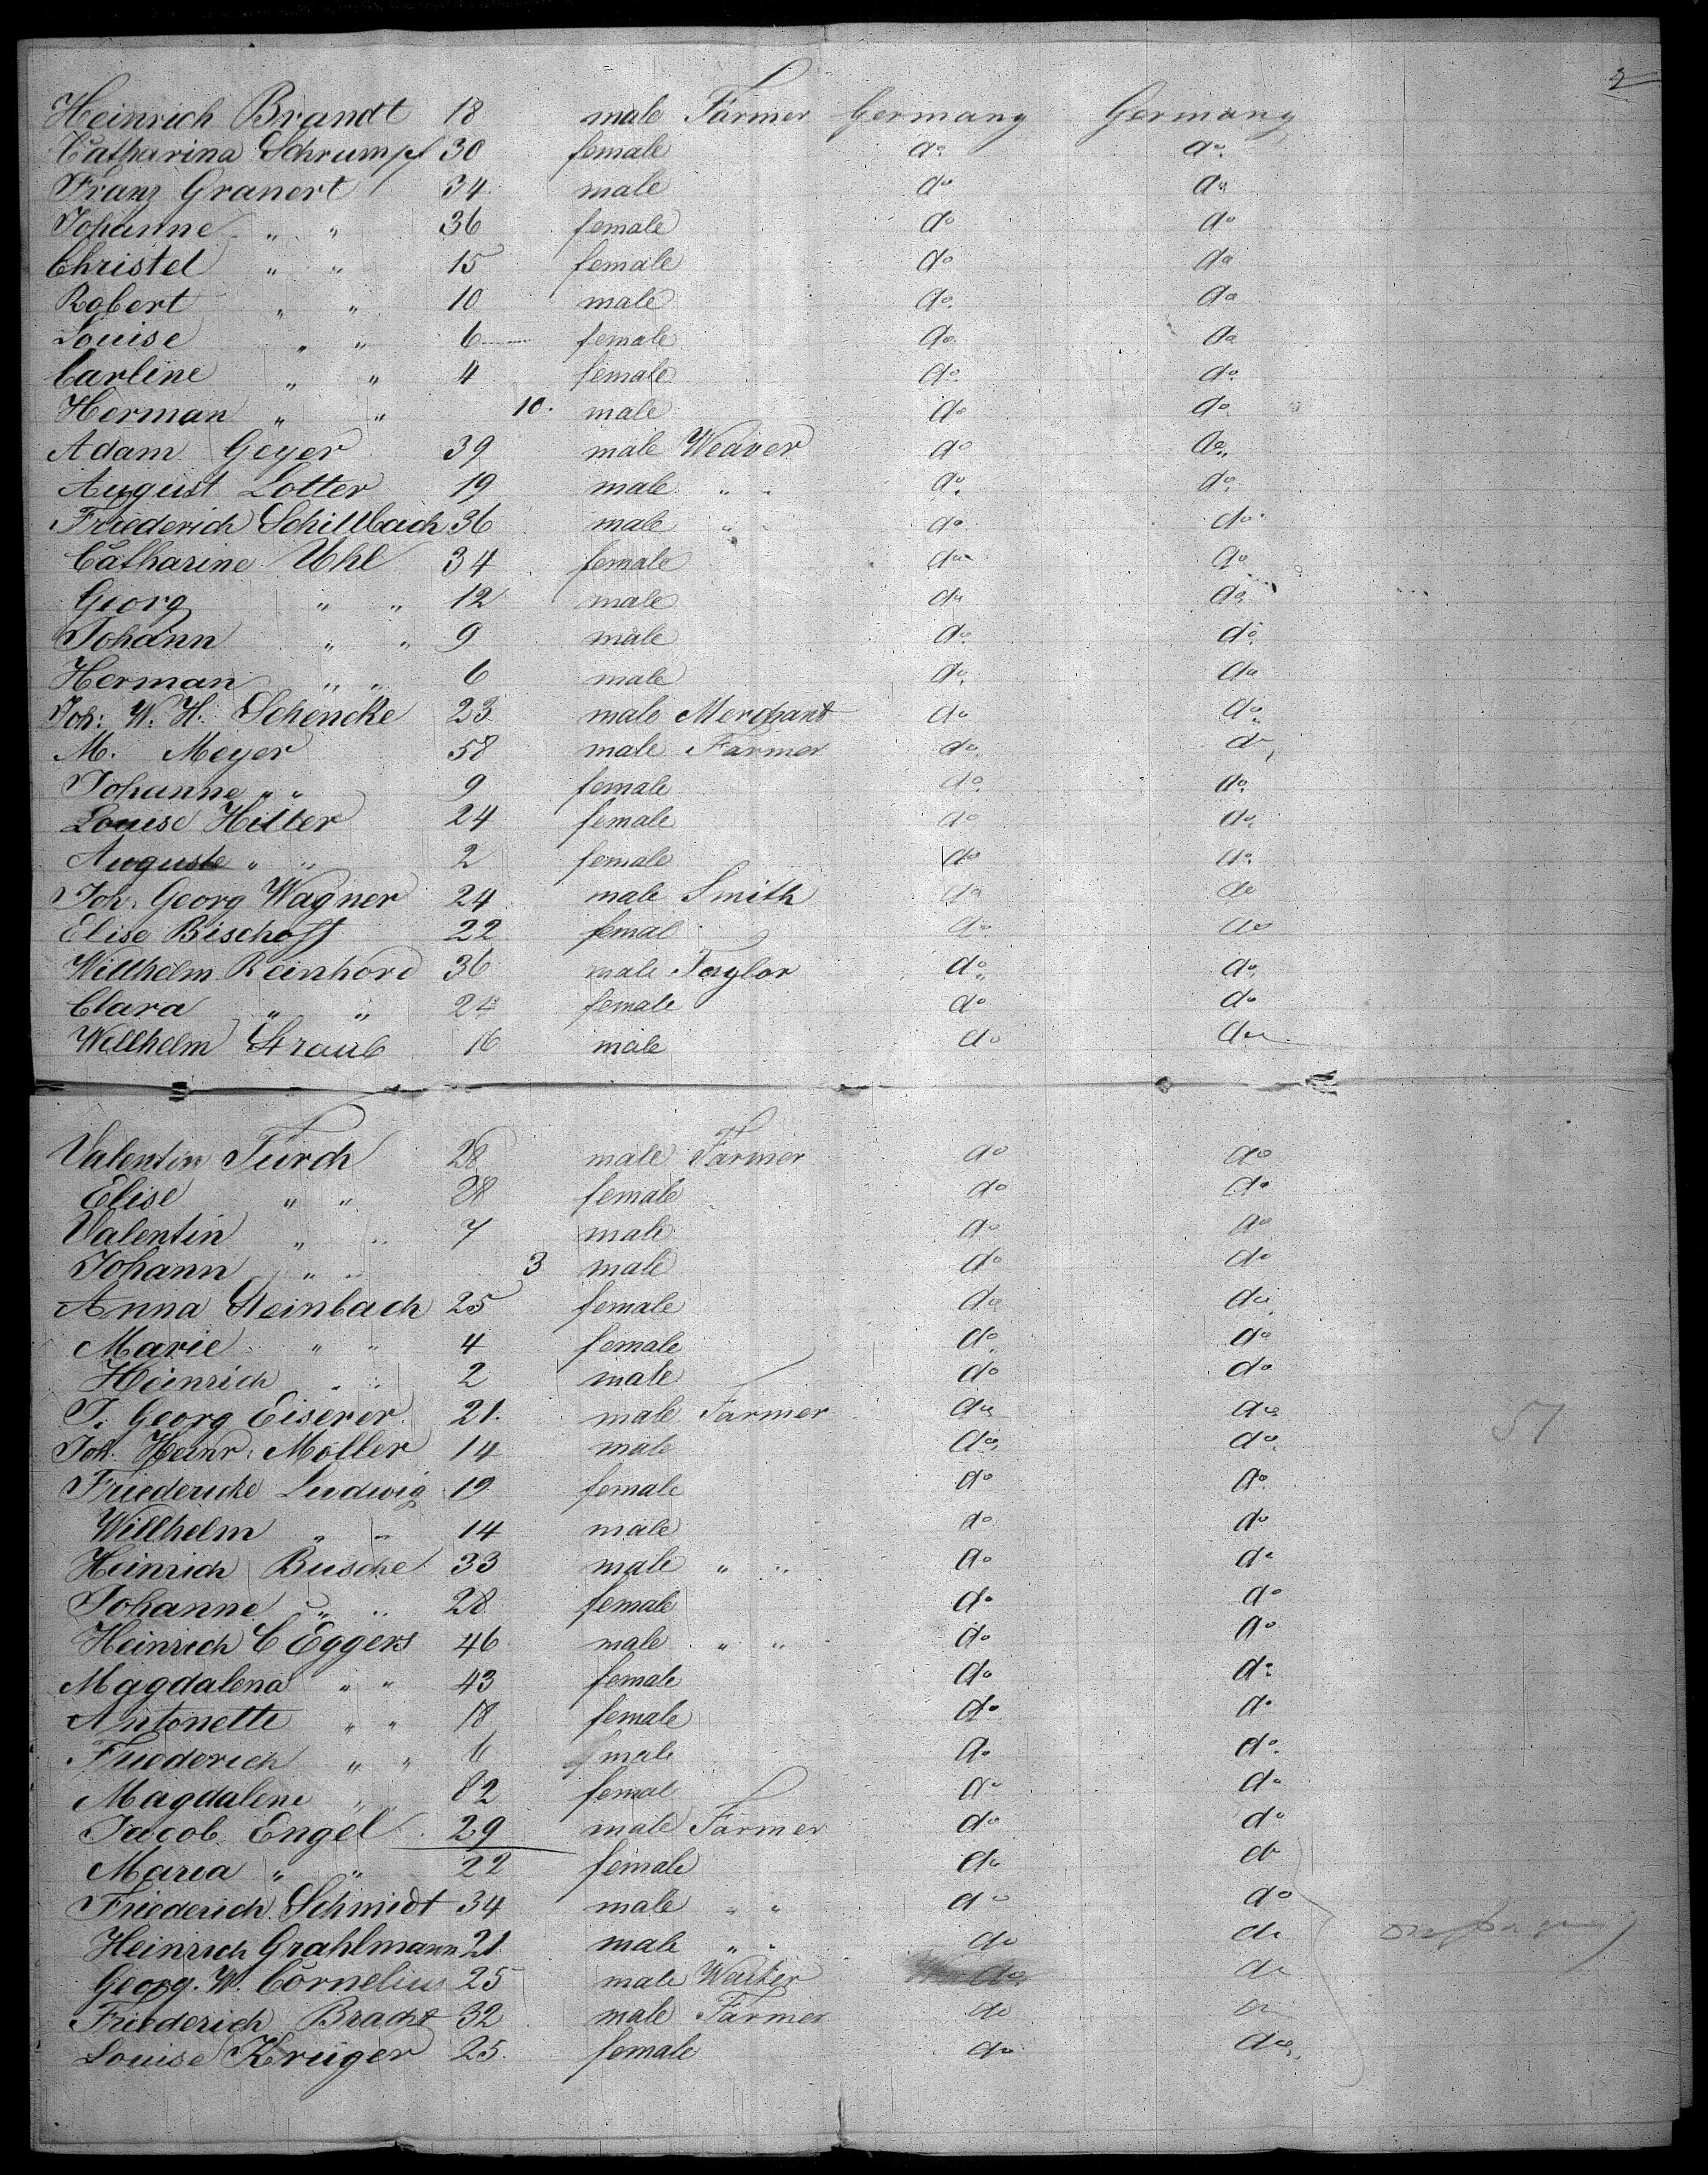 2
Heinrich Brandt 18 male Farmer Germany Germany
Catharina Schrumpf 30 female do do
Franz Granert 34 male do do
Johanne " " 36 female do do
Christel " " 15 female do do
Robert " " 10 male do do
Louise " " 6 female do do
Carline " " 4 female do do
Herman " " 10. male do do
Adam Geyer 39 male Weaver do do
August Lotter 19 male " " do do
Friederich Schillbach 36 male " do do
Catharine Uhl 34 female do do
Georg " " 12 male do do
Johann " " 9 male do do
Herman " " 6 male do do
Joh: W. H. Schencke 23 male Merchant do do
M. Meyer 58 male Farmer do do
Johanne " " 9 female do do
Louise Hitter 24 female do do
Auguste " " 2 female do do
Joh. Georg Wagner 24 male Smith do do
Elise Bischoff 22 femal do do
Willhelm Reinhord 36 male Taylor do do
Clara " " 24 female do do
Willhelm Straub 16 male do do
Valentin Türch 28 male Farmer do do
Elise " " 28 female do do
Valentin " " 7 male do do
Johann " " 3 male do do
Anna Steinbach 25 female do do
Marie " " 4 female do do
Heinrich " " 2 male do do
J. Georg Eiserer 21. male Farmer do do 51
Joh. Heinr: Moller 14 male do do
Friedericke Ludwig 19 female do do
Willhelm " " 14 male do do
Heinrich Busche 33 male " " do do
Johanne " " 28 female do do
Heinrich C Eggers 46 male " " do do
Magdalena " " 43 female do do
Antonette " " 18 female do do
Friederich " " 6 male do do
Magdalene " " 82 femal do do
Jacob Engel 29 male Farmer do do
Maria " " 22 female do do
Friederich Schmidt 34 male " " do do
Heinrich Grahlmann 21 male " " do do
Georg. W. Cornelius 25 male Waiter do do
Friederich Bracht 32 male Farmer do do
Louise Krüger 25. female do do